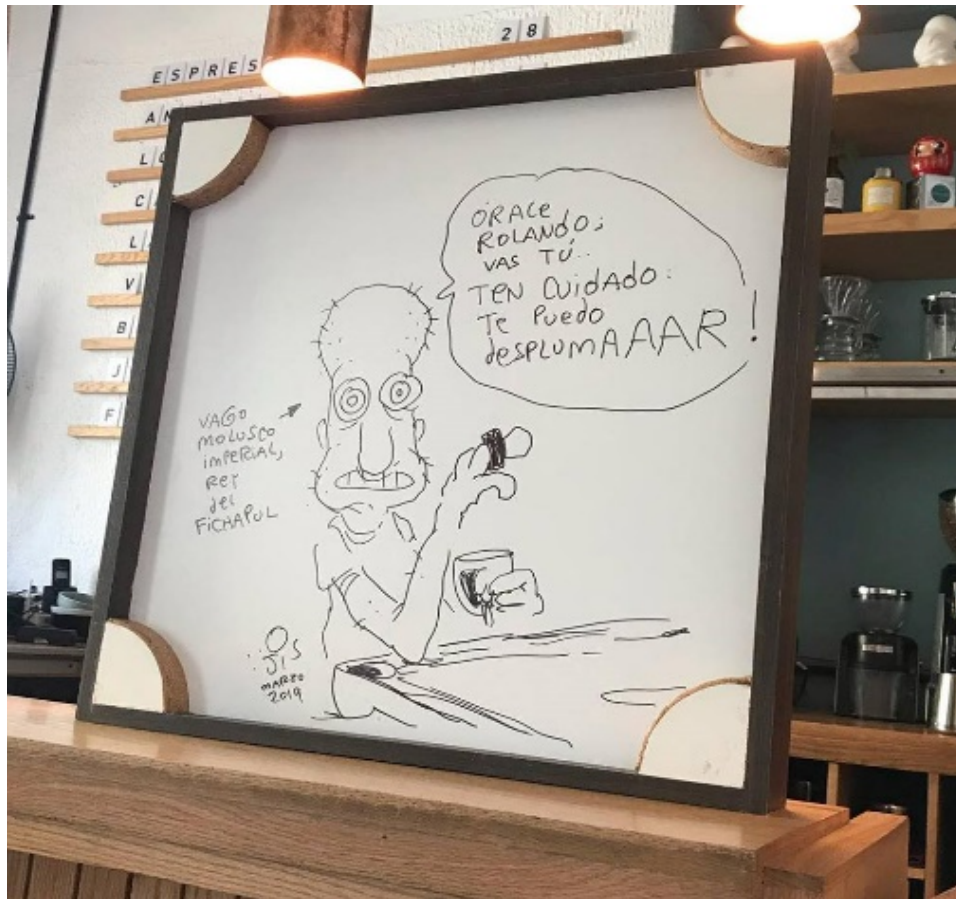 28
ESPRES
ÓRALE
ROLANDO;
VAS TÚ..
TEN CUIDADO:
Te Puedo
desPLUMAAAR!
VAGO
MOLUSCO
imPERIAL,
Rey
del
FICHAPUL
JIS
MARZO
2019